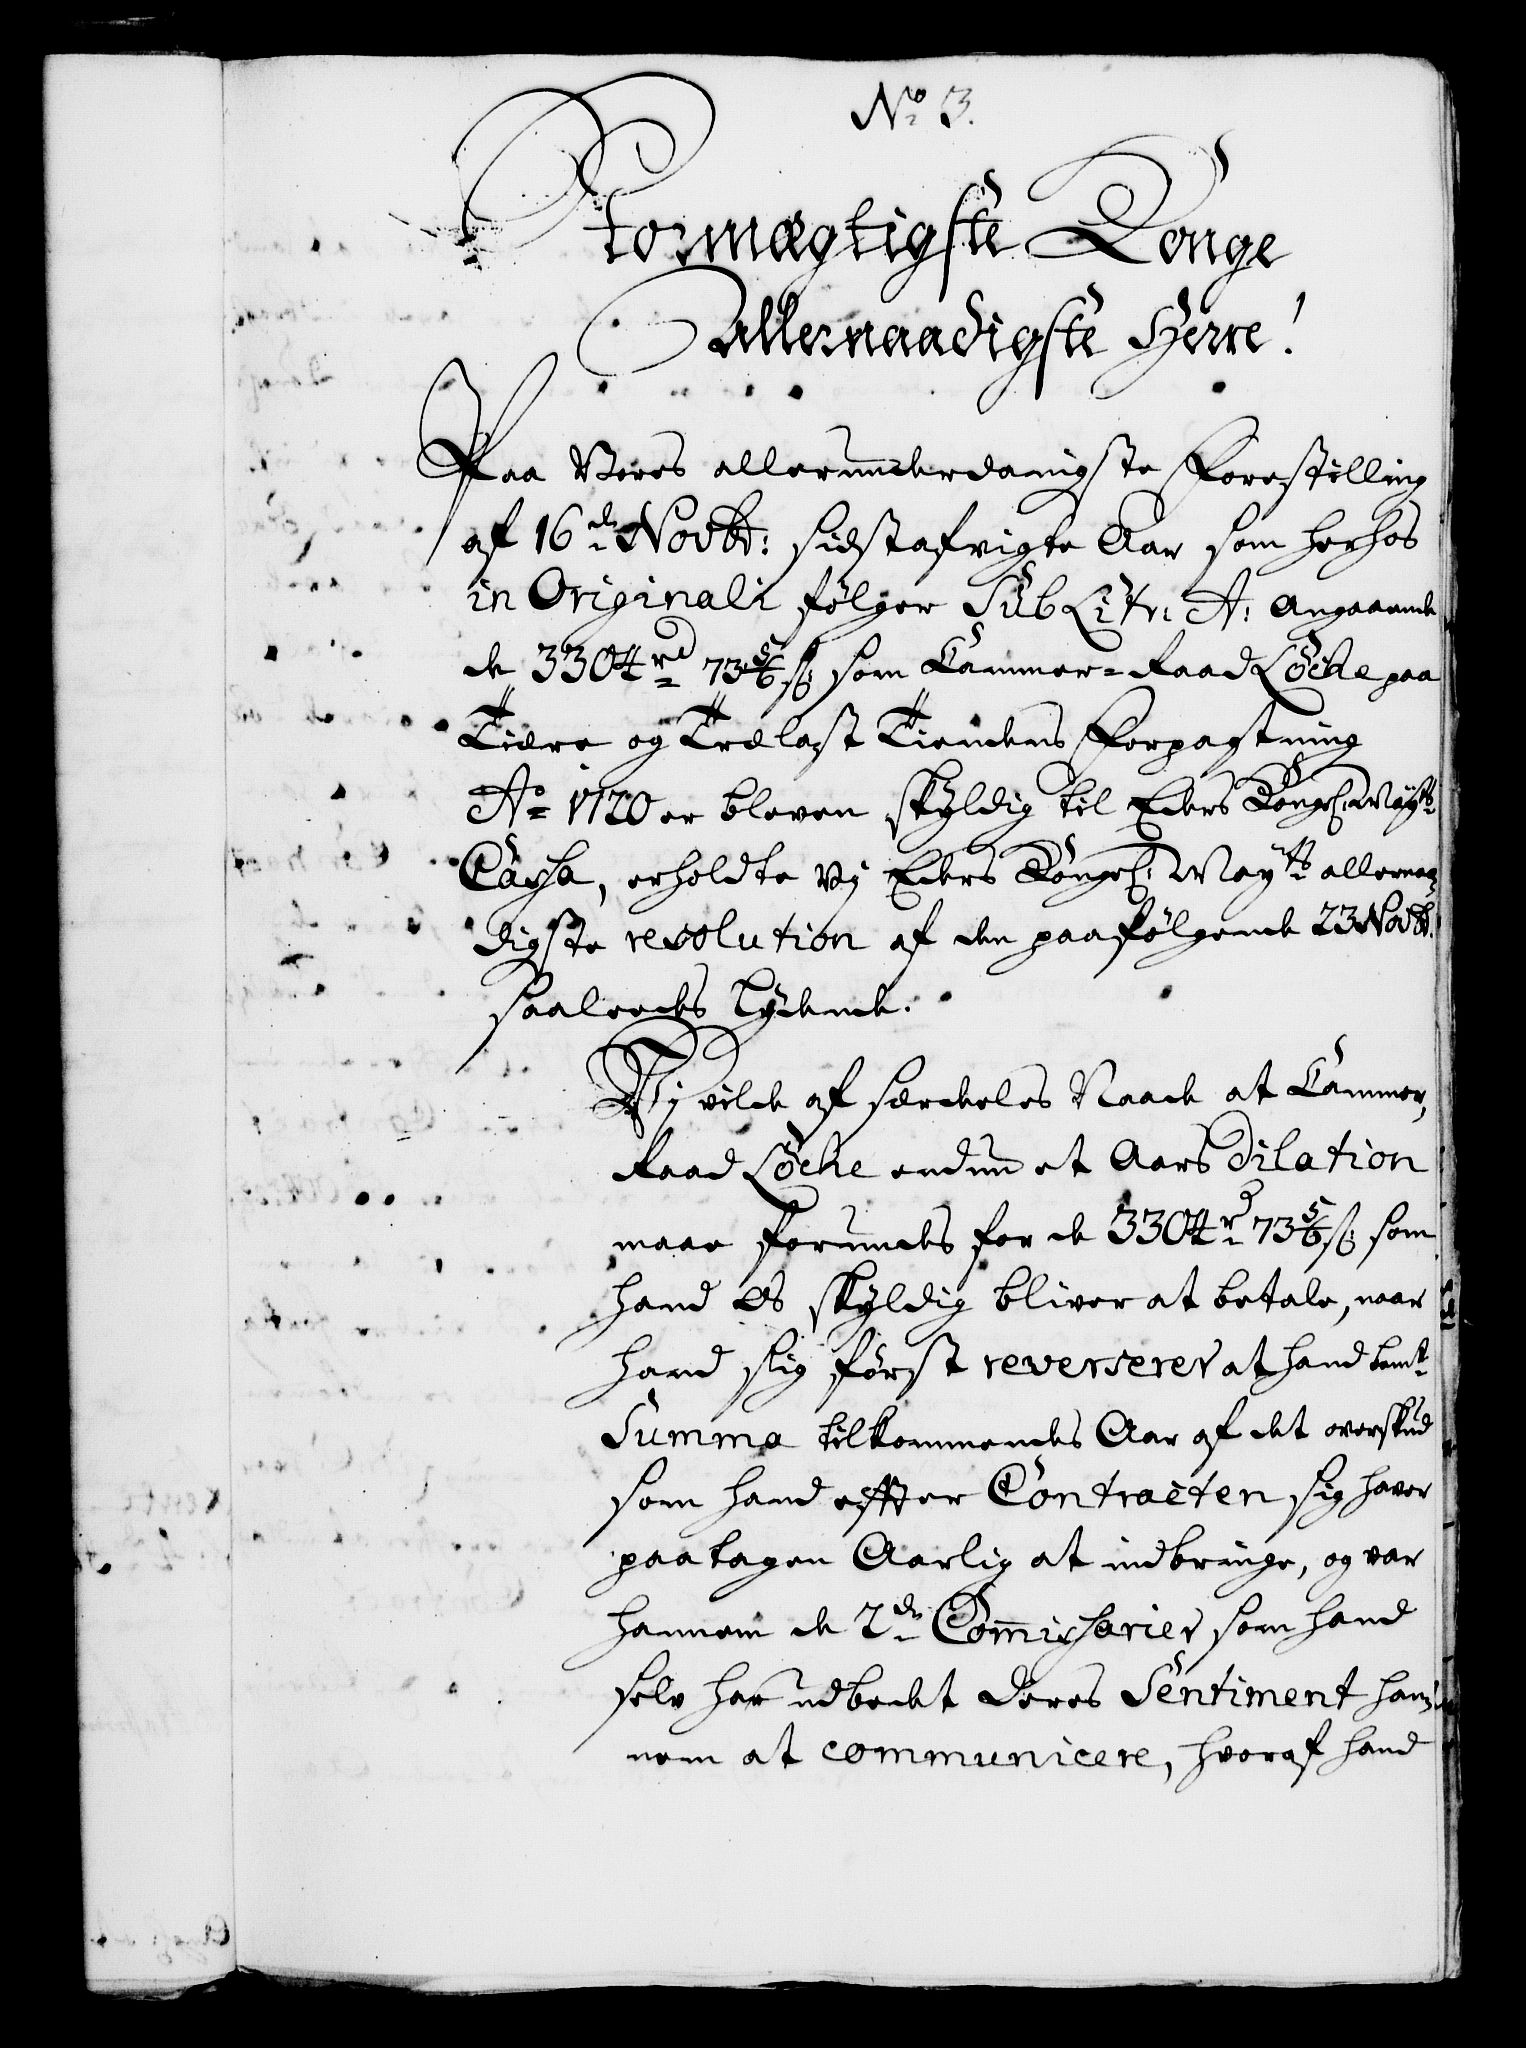 No 3.
Stormægtigste Konge
allernaadigste Herre!
Paa Vores allerunderdanigste Forestilling
af 16de Novbr: sidstafvigte Aar som herhos
in Originali følger Sub Litr: A: angaaende
de 3304 rd 73 5/6 ß som Cammer-Raad Löcke paa
Tiære og Trælast Tiendens Forpagtning
Ao 1720 er bleven skyldig til Eders Kongl: Mayts
Cassa, erholdte vj Eders Kongel: Mayts allernaa-
digste resolution af den paafølgende 23 Novbr.
saaleedes lydende.
Vj vilde af særdeles Naade at Cammer,
Raad Löcke endnu et Aars dilation
maae forundes for de 3304 rd 73 5/6 ß som
hand Os skyldig bliver at betale, naar
hand sig først reverserer at hand bemte
Summa tilkommendes Aar af det overskud
som hand effter Contracten sig haver
paatagen Aarlig at indbringe, og var
hannem de 2de Commissarier som hand
selv har udbedt deres Sentiment han-
nem at communicere, hvoraf hand